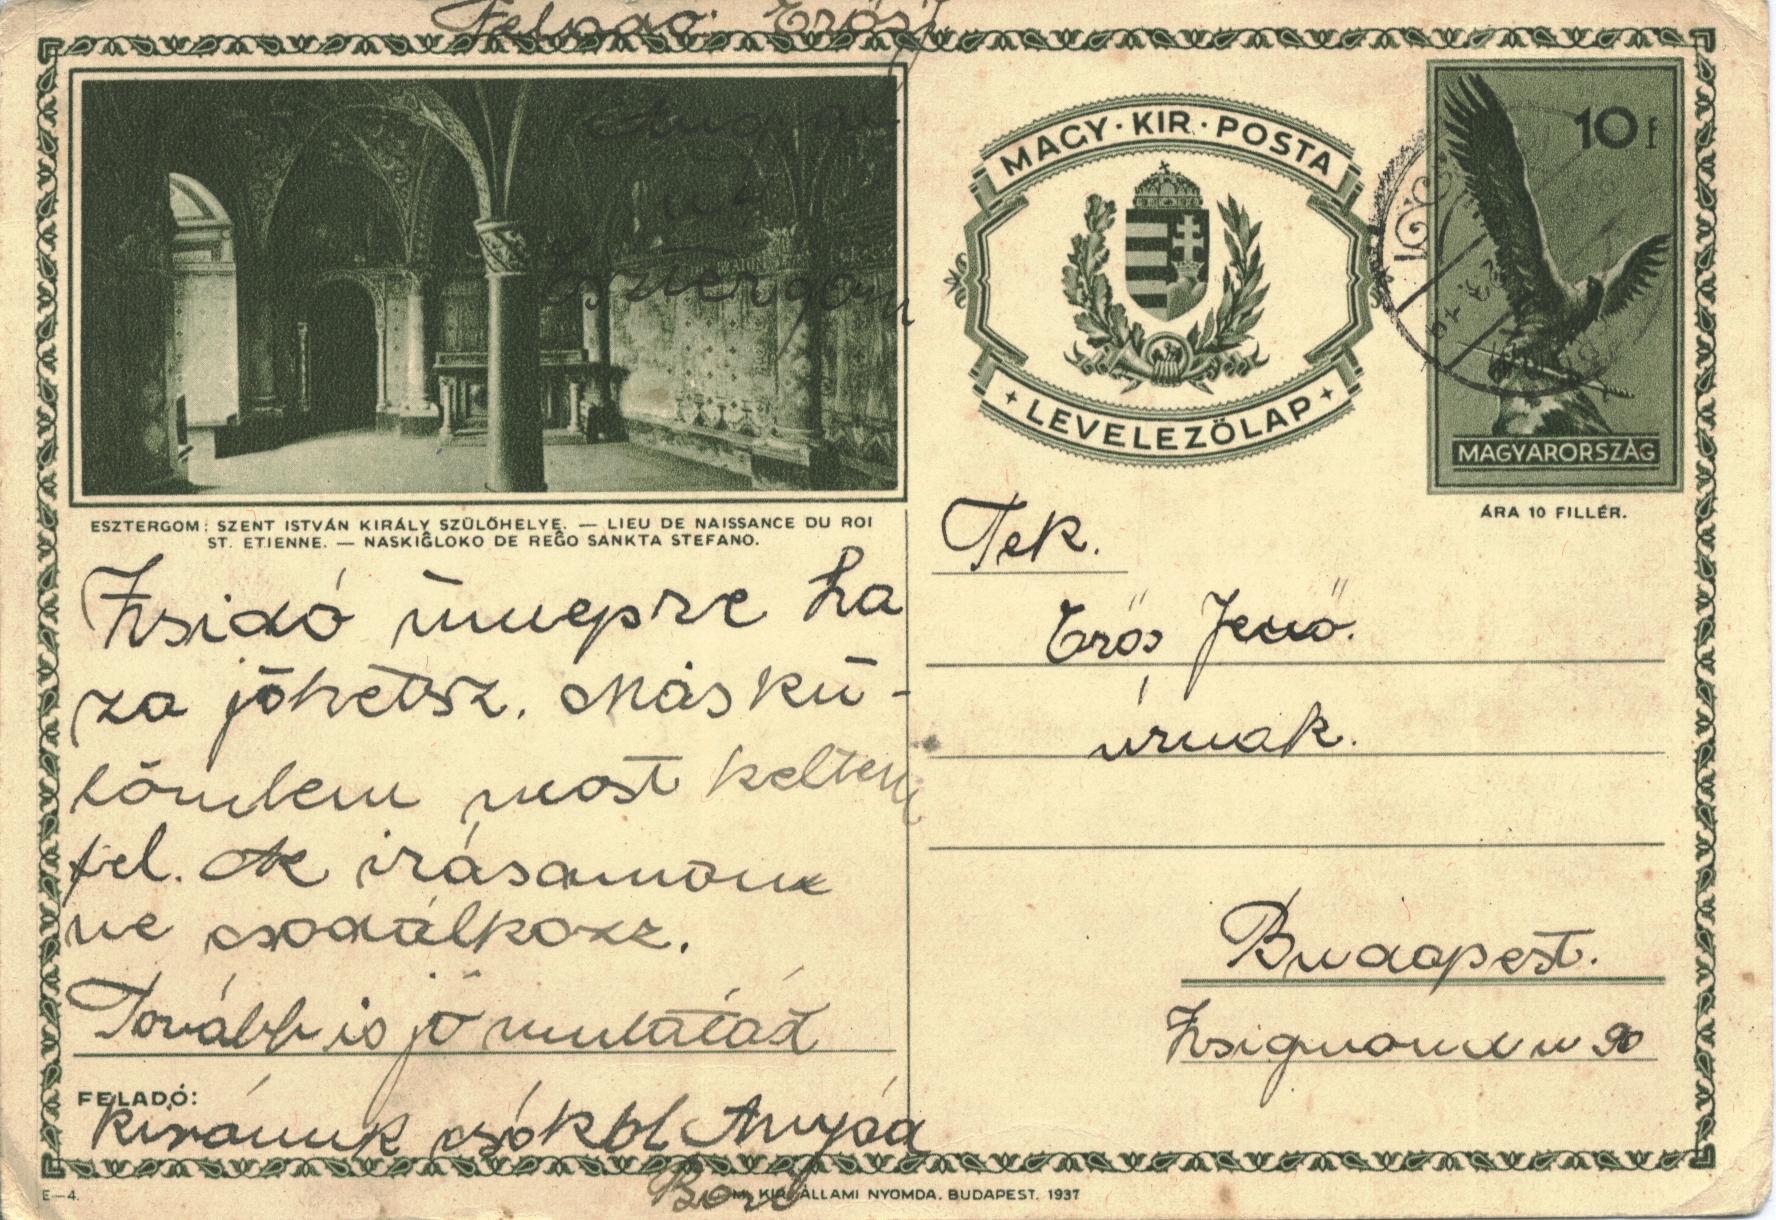 Feladó: Erős J
Esztergom
MAGY · KIR · POSTA
LEVELEZŐLAP
10 f
MAGYARORSZÁG
ÁRA 10 FILLÉR.
ESZTERGOM: SZENT ISTVÁN KIRÁLY SZÜLŐHELYE. — LIEU DE NAISSANCE DU ROI
ST. ETIENNE. — NASKIĜLOKO DE REĜO SANKTA STEFANO.
Zsidó ünnepre ha
za jöhetsz. Máskü-
lömben most keltem
fel. Az irásamon
ne csodálkozz.
Tovább is jó mulatást
FELADÓ:
kivánunk csókol Anyád
Tek.
Erős Jenő.
úrnak.
Budapest.
Zsigmond u 90
E—4.
M. KIR. ÁLLAMI NYOMDA. BUDAPEST. 1937